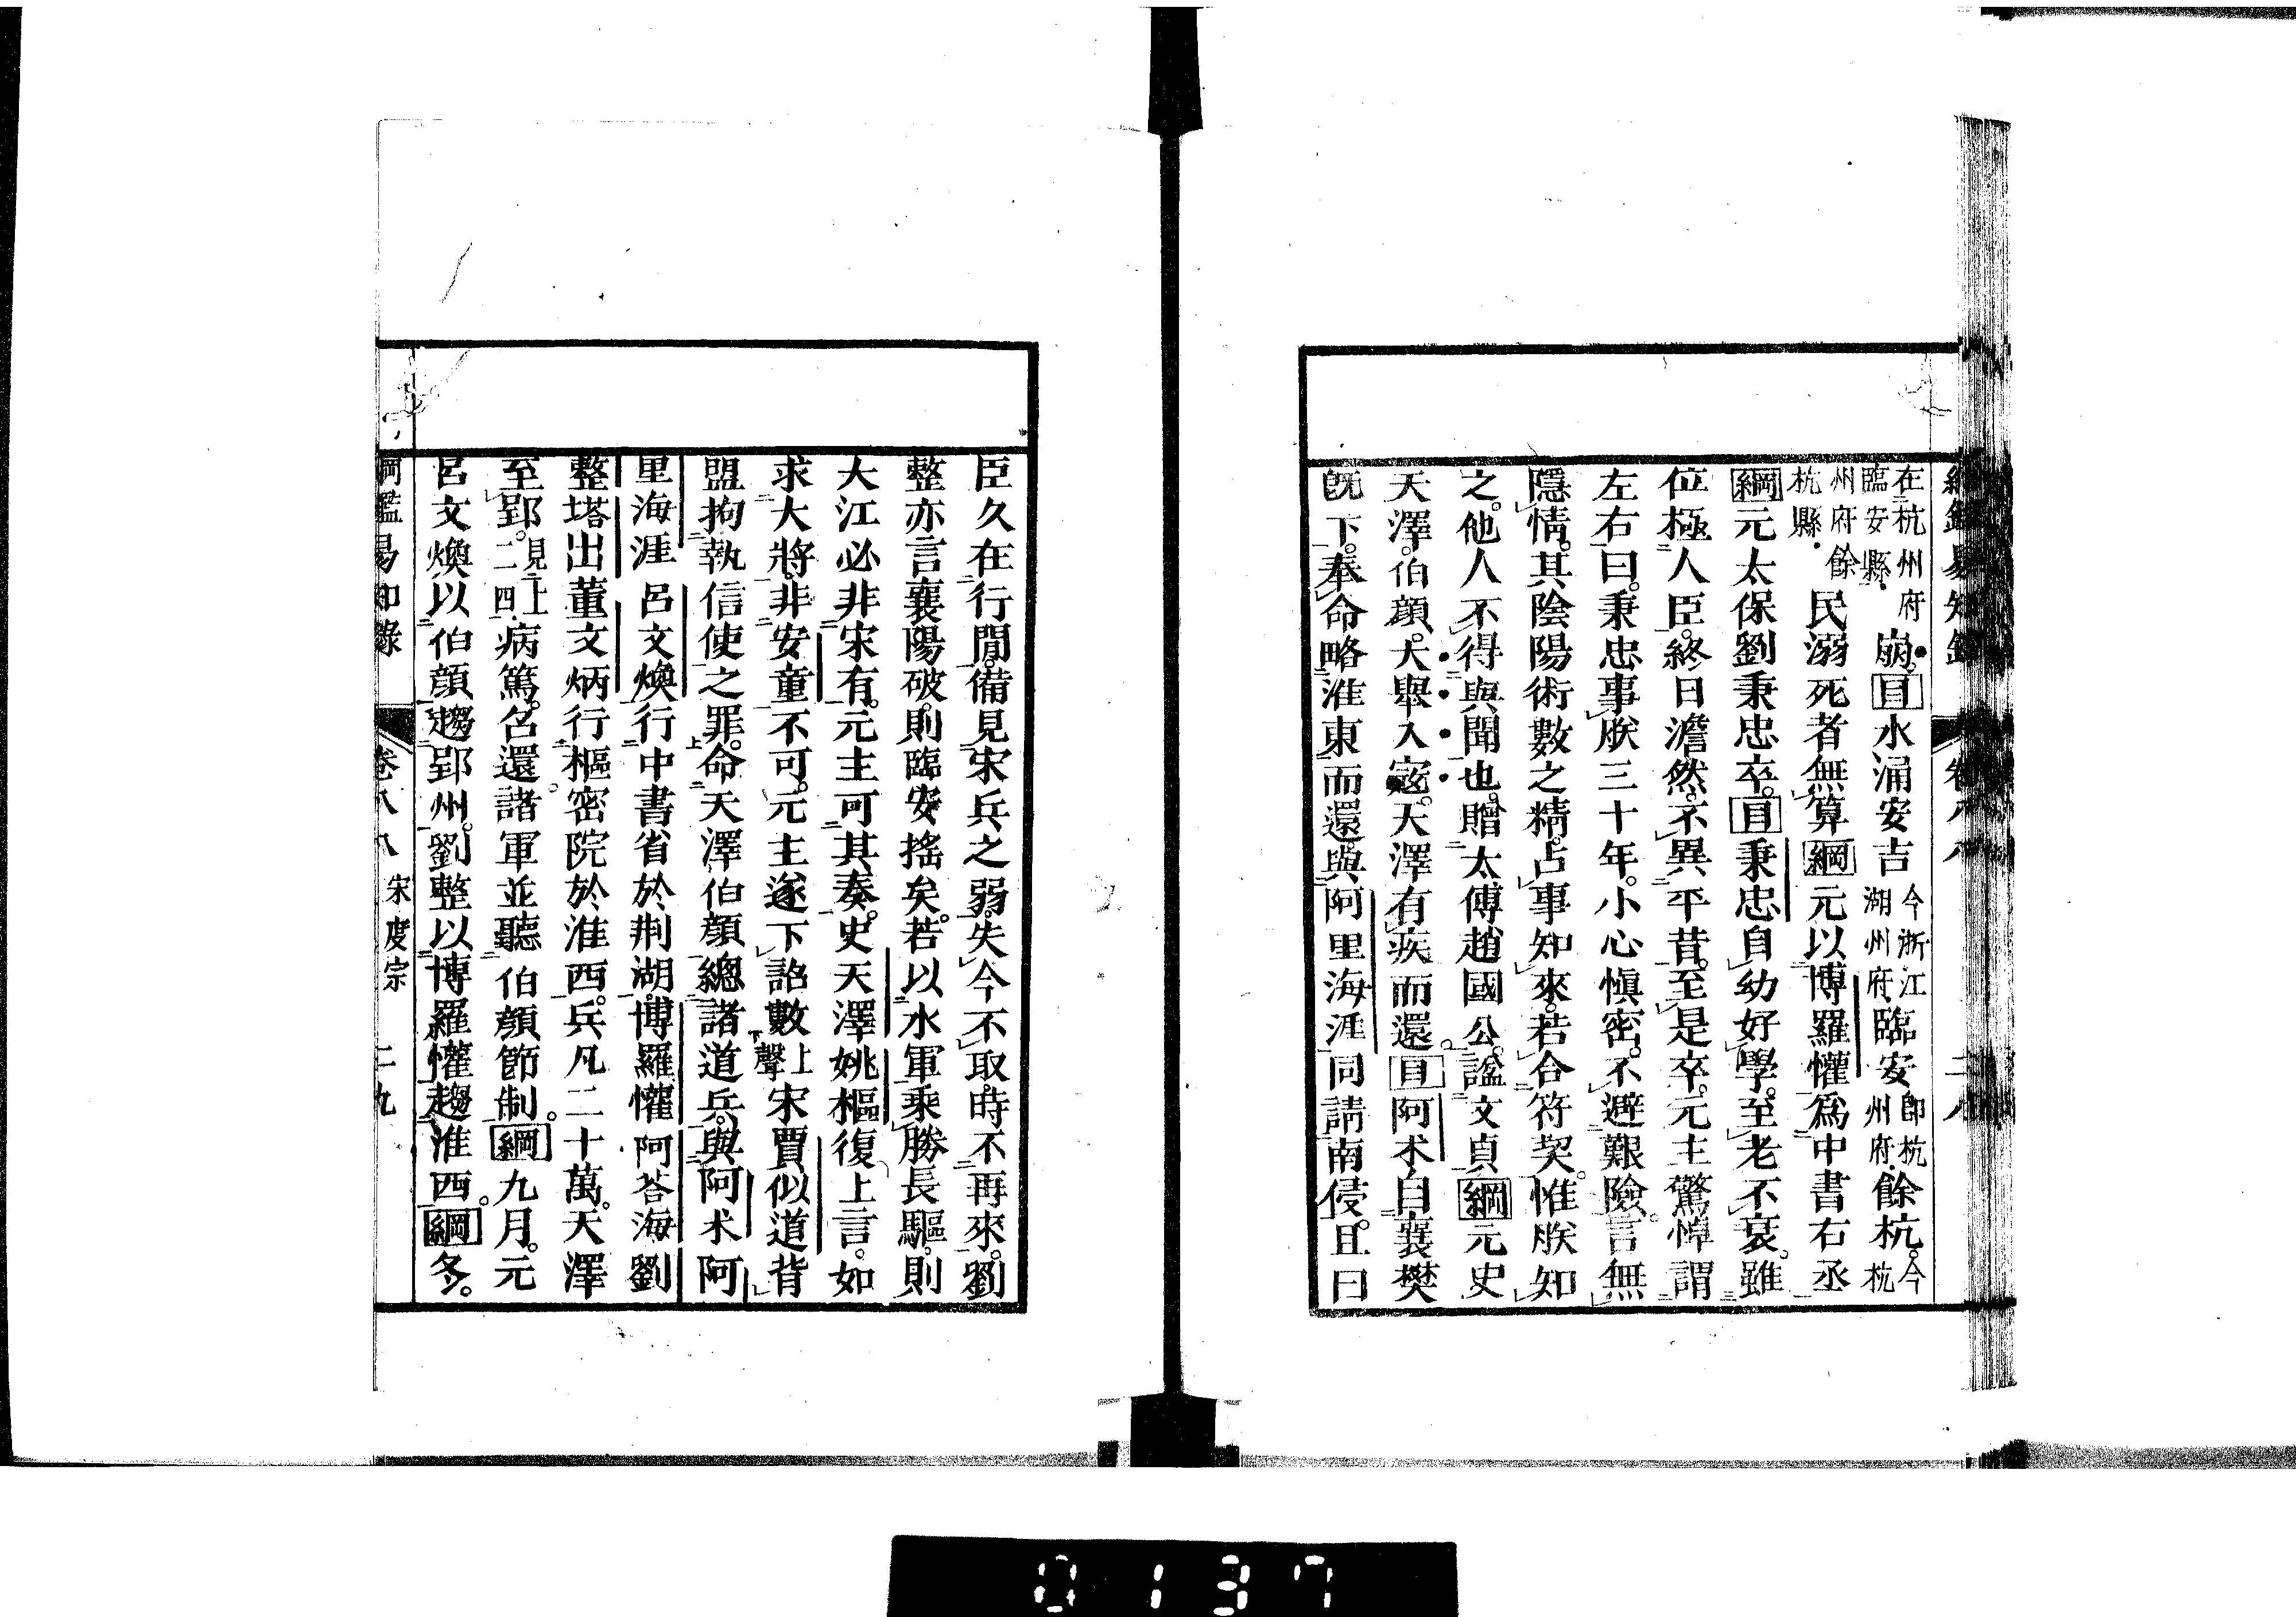 綱鑑易知錄 卷八八 二八
在杭州府臨安縣 崩目水涌安吉 今浙江湖州府 臨安 卽杭州府 餘杭 今杭
州府餘杭縣 民溺死者無算綱元以博羅懽爲中書右丞
綱元太保劉秉忠卒目秉忠自幼好學至老不衰雖
位極人臣終日澹然不異平昔至是卒元主驚悼謂
左右曰秉忠事朕三十年小心愼密不避艱險言無
隱情其陰陽術數之精占事知來若合符契惟朕知
之他人不得與聞也贈太傅趙國公謚文貞綱元史
天澤伯顔大舉入寇天澤有疾而還目阿术自襄樊
旣下奉命略淮東而還與阿里海涯同請南侵且曰
臣久在行閒備見宋兵之弱失今不取時不再來劉
整亦言襄陽破則臨安搖矣若以水軍乘勝長驅則
大江必非宋有元主可其奏史天澤姚樞復上言如
求大將非安童不可元主遂下詔數 上聲 宋賈似道背
盟拘執信使之罪命天澤伯顔總諸道兵與阿术阿
里海涯呂文煥行中書省於荆湖博羅懽阿荅海劉
整塔出董文炳行樞密院於淮西兵凡二十萬天澤
至郢 見上二四 病篤召還諸軍並聽伯顔節制綱九月元
呂文煥以伯顔趨郢州劉整以博羅懽趨淮西綱冬
綱鑑易知錄 卷八八 宋度宗 二九
0137